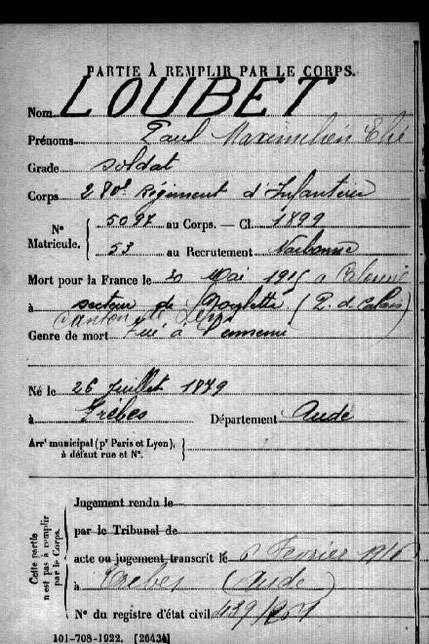 PARTIE À REMPLIR PAR LE CORPS.
Nom LOUBET
Prénoms Paul Maximilien Elie
Grade soldat
Corps 280e Régiment d'Infanterie
N° Matricule. 5097 au Corps. — Cl. 1899
53 au Recrutement Narbonne
Mort pour la France le 30 Mai 1915 a
à secteur de Noulette (P. d. Calais)
canton de Lens
Genre de mort Tué à l'ennemi
Né le 26 Juillet 1879
à Trèbes Département Aude
Arrt municipal (pr Paris et Lyon),
à défaut rue et N°.
Cette partie
n'est pas à remplir
par le Corps.
Jugement rendu le
par le Tribunal de
acte ou jugement transcrit le 6 Février 1916
à Trèbes (Aude)
N° du registre d'état civil
101-708-1922. [26434]